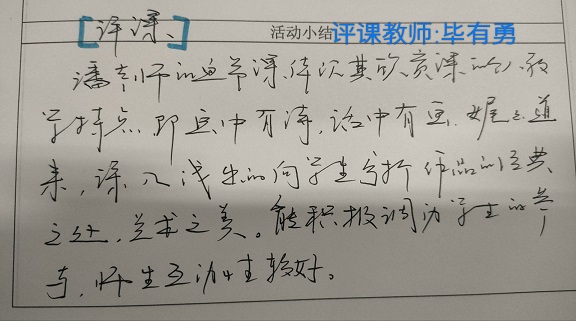 [评课、 活动小结 评课教师:毕有勇
潘老师的这节课，体次其欣赏课的教
学特点，即画中有诗，话中有画，娓娓道
来，深入浅出的向学生分析作品的经典
之处，艺术之美。能积极调动学生的参
与，师生互动性较好。